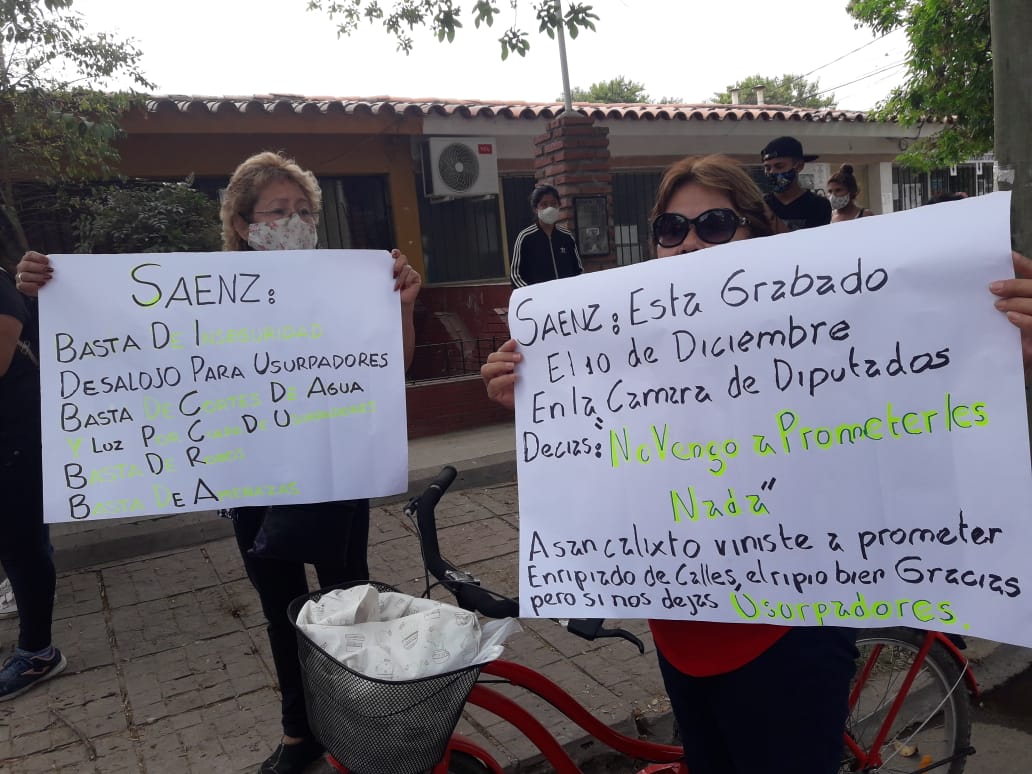 SAENZ:
BASTA DE INSEGURIDAD
DESALOJO PARA USURPADORES
BASTA DE CORTES DE AGUA
Y LUZ POR CULPA DE USURPADORES
BASTA DE ROBOS
BASTA DE AMENAZAS
SAENZ: ESTA GRABADO
El 10 de Diciembre
En la Camara de Diputados
Decias: "No Vengo a Prometerles
Nada"
A san calixto viniste a prometer
Enripiado de Calles, el ripio bien Gracias
pero si nos dejas Usurpadores.